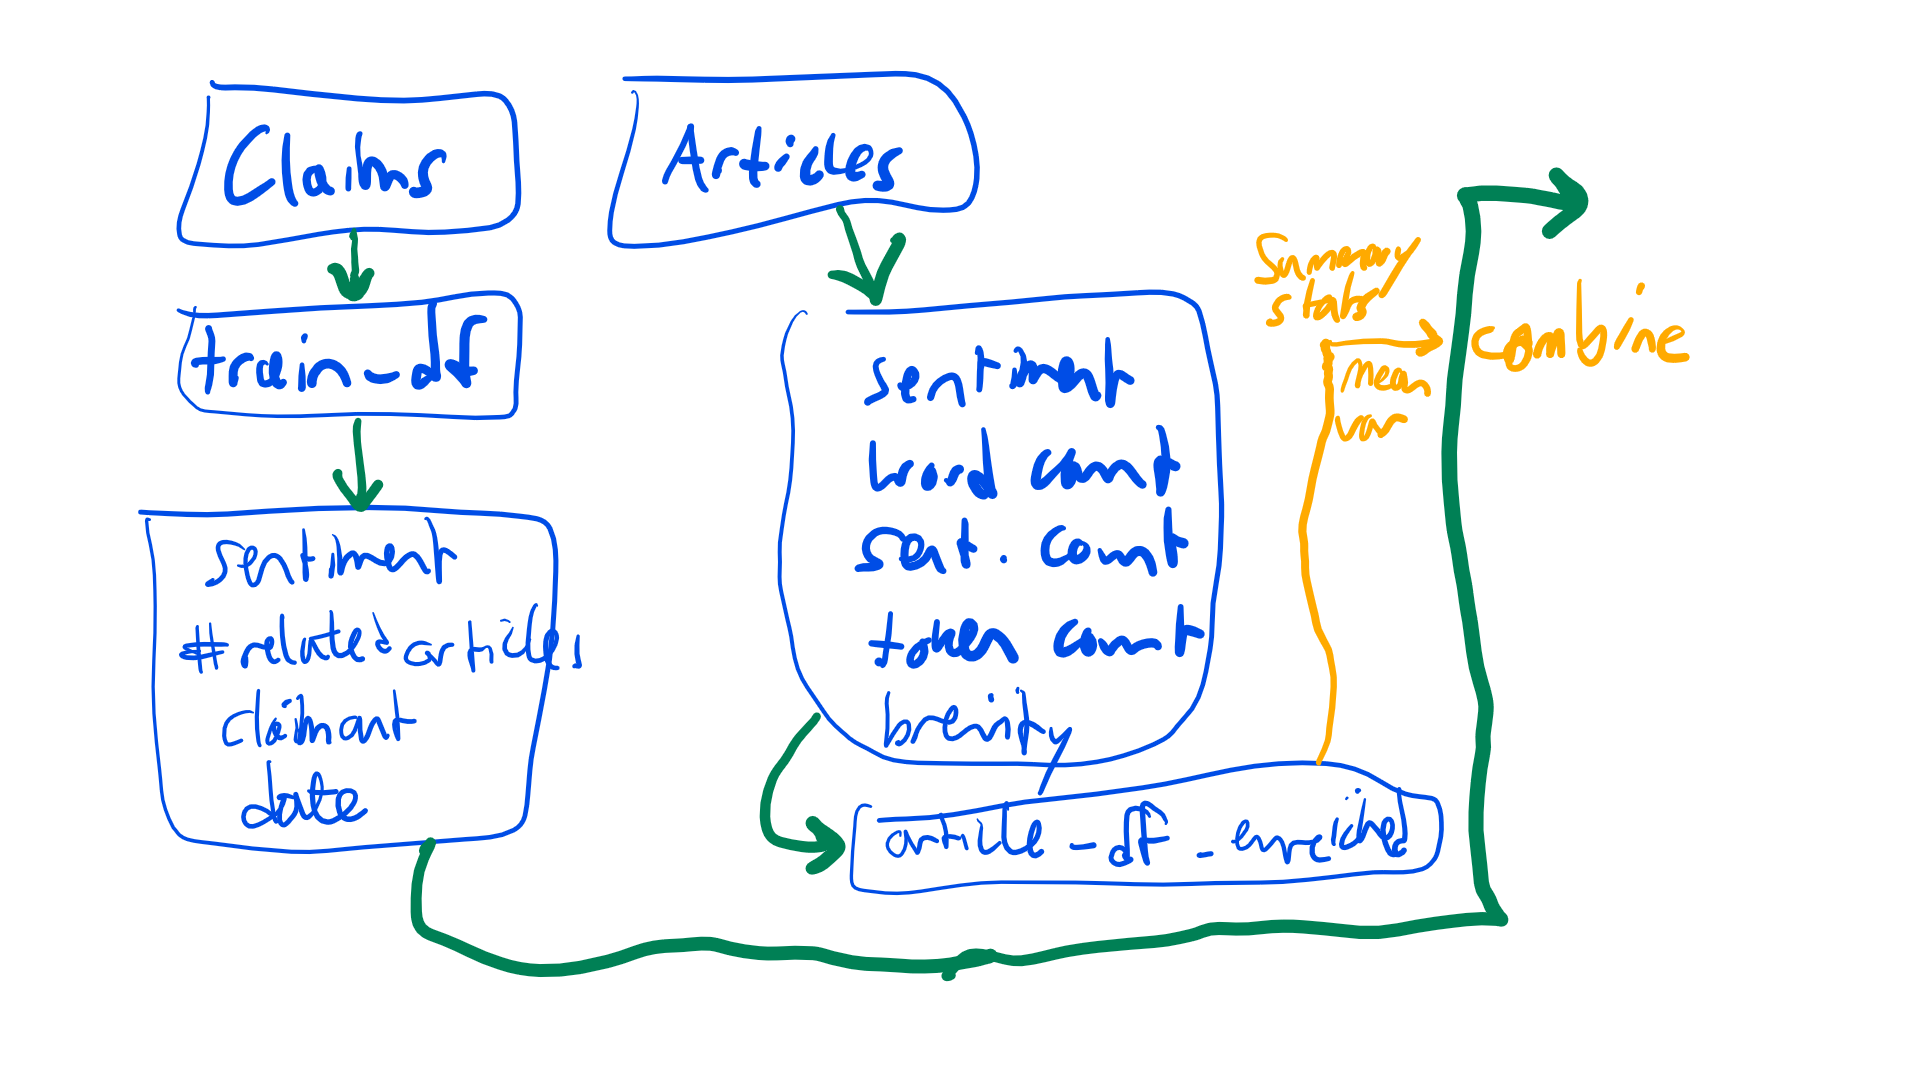 Claims
train_df
sentiment
#related articles
claimant
date
Articles
sentiment
word count
sent. count
token count
brevity
article_df_enriched
Summary
stats
mean
var
combine